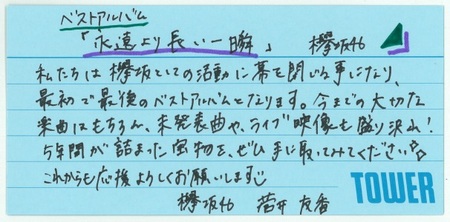 ベストアルバム
「永遠より長い一瞬」 欅坂46
私たちは欅坂としての活動に幕を閉じる事になり、
最初で最後のベストアルバムとなります。今までの大切な
楽曲はもちろん、未発表曲や、ライブ映像も盛り沢山!
5年間が詰まった宝物を、ぜひ手に取ってみてください。
これからも応援よろしくお願いします
欅坂46 菅井友香
TOWER